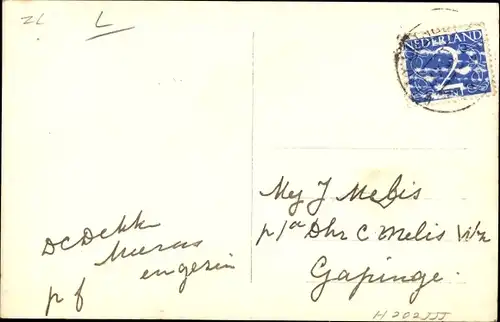 ZL L
NEDERLAND
2
DCDekke
en gezin
pf
Mej J Melis
p/a Dhr C Melis
Gapinge.
H 202 III